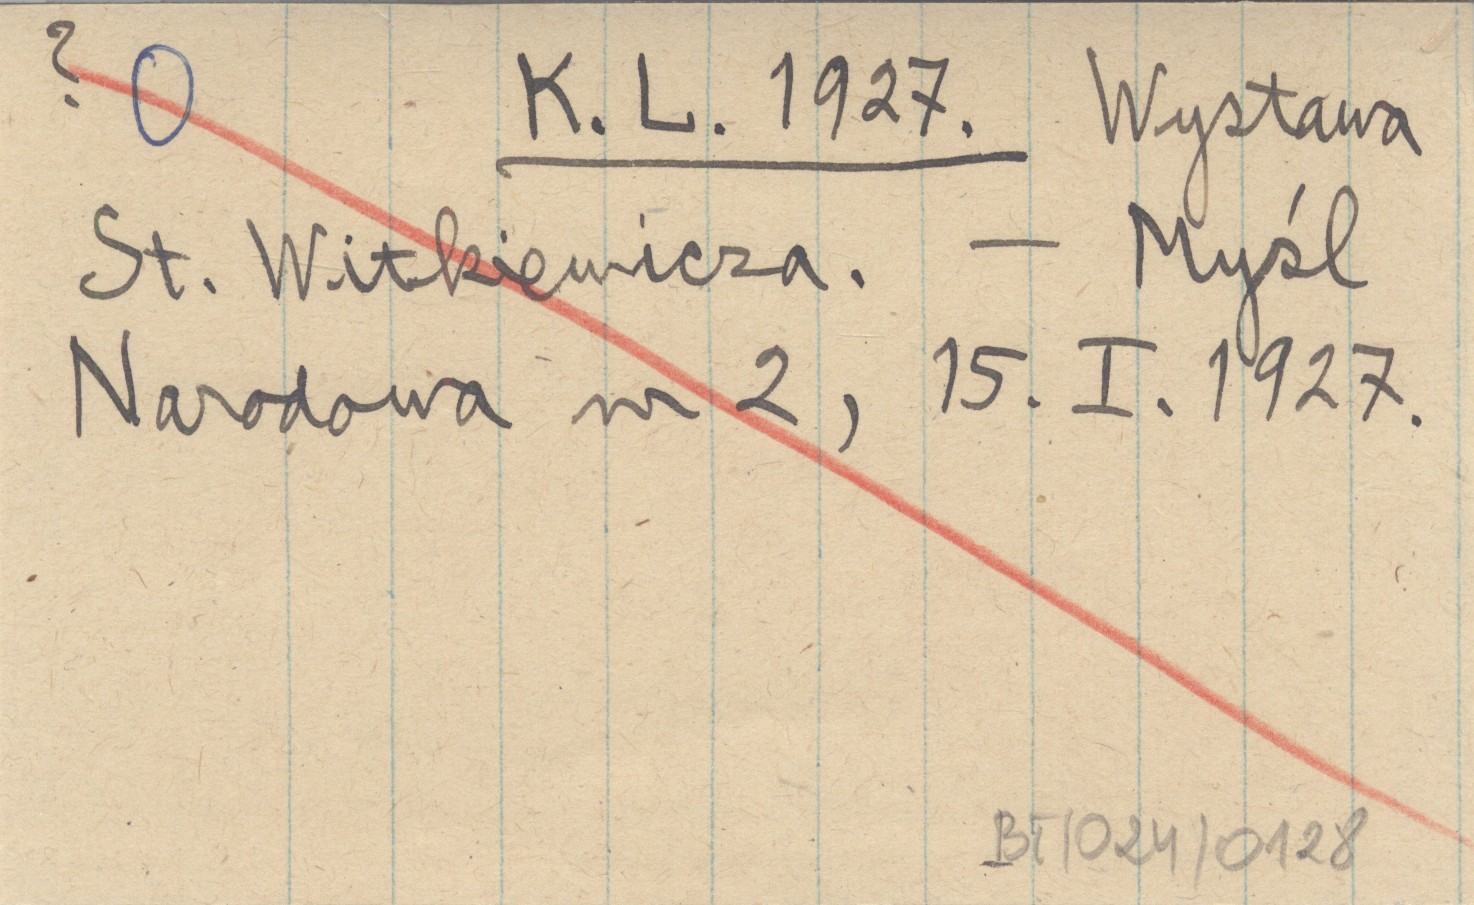 ? O K. L. 1927. Wystawa
St. Witkiewicza. — Myśl
Narodowa nr 2, 15. I. 1927.
BT/024/0128